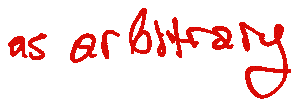 as arbitrary